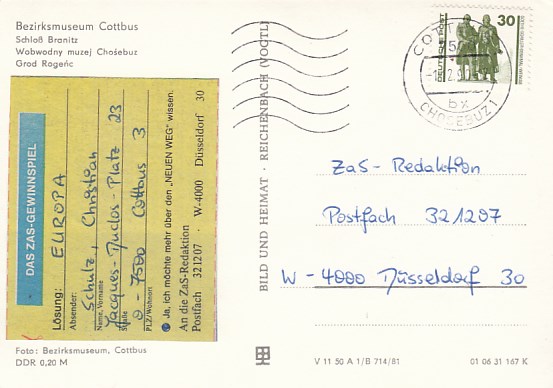 Bezirksmuseum Cottbus
Schloß Branitz
Wobwodny muzej Chośebuz
Grod Rogeńc
DAS ZAS-GEWINNSPIEL
Lösung: EUROPA
Absender:
Schulz, Christian
Name, Vorname
Jacques-Duclos-Platz 23
Straße
O-7500 Cottbus 3
PLZ/Wohnort
Ja, ich möchte mehr über den „NEUEN WEG" wissen.
An die ZaS-Redaktion
Postfach 321207 · W-4000 Düsseldorf 30
Foto: Bezirksmuseum, Cottbus
DDR 0,20 M
BILD UND HEIMAT · REICHENBACH (VOGTL)
COTTBUS
bx
CHOSEBUZ 1
DEUTSCHE POST
30
ZaS-Redaktion
Postfach 321207
W-4000 Düsseldorf 30
V 11 50 A 1/B 714/81
01 06 31 167 K